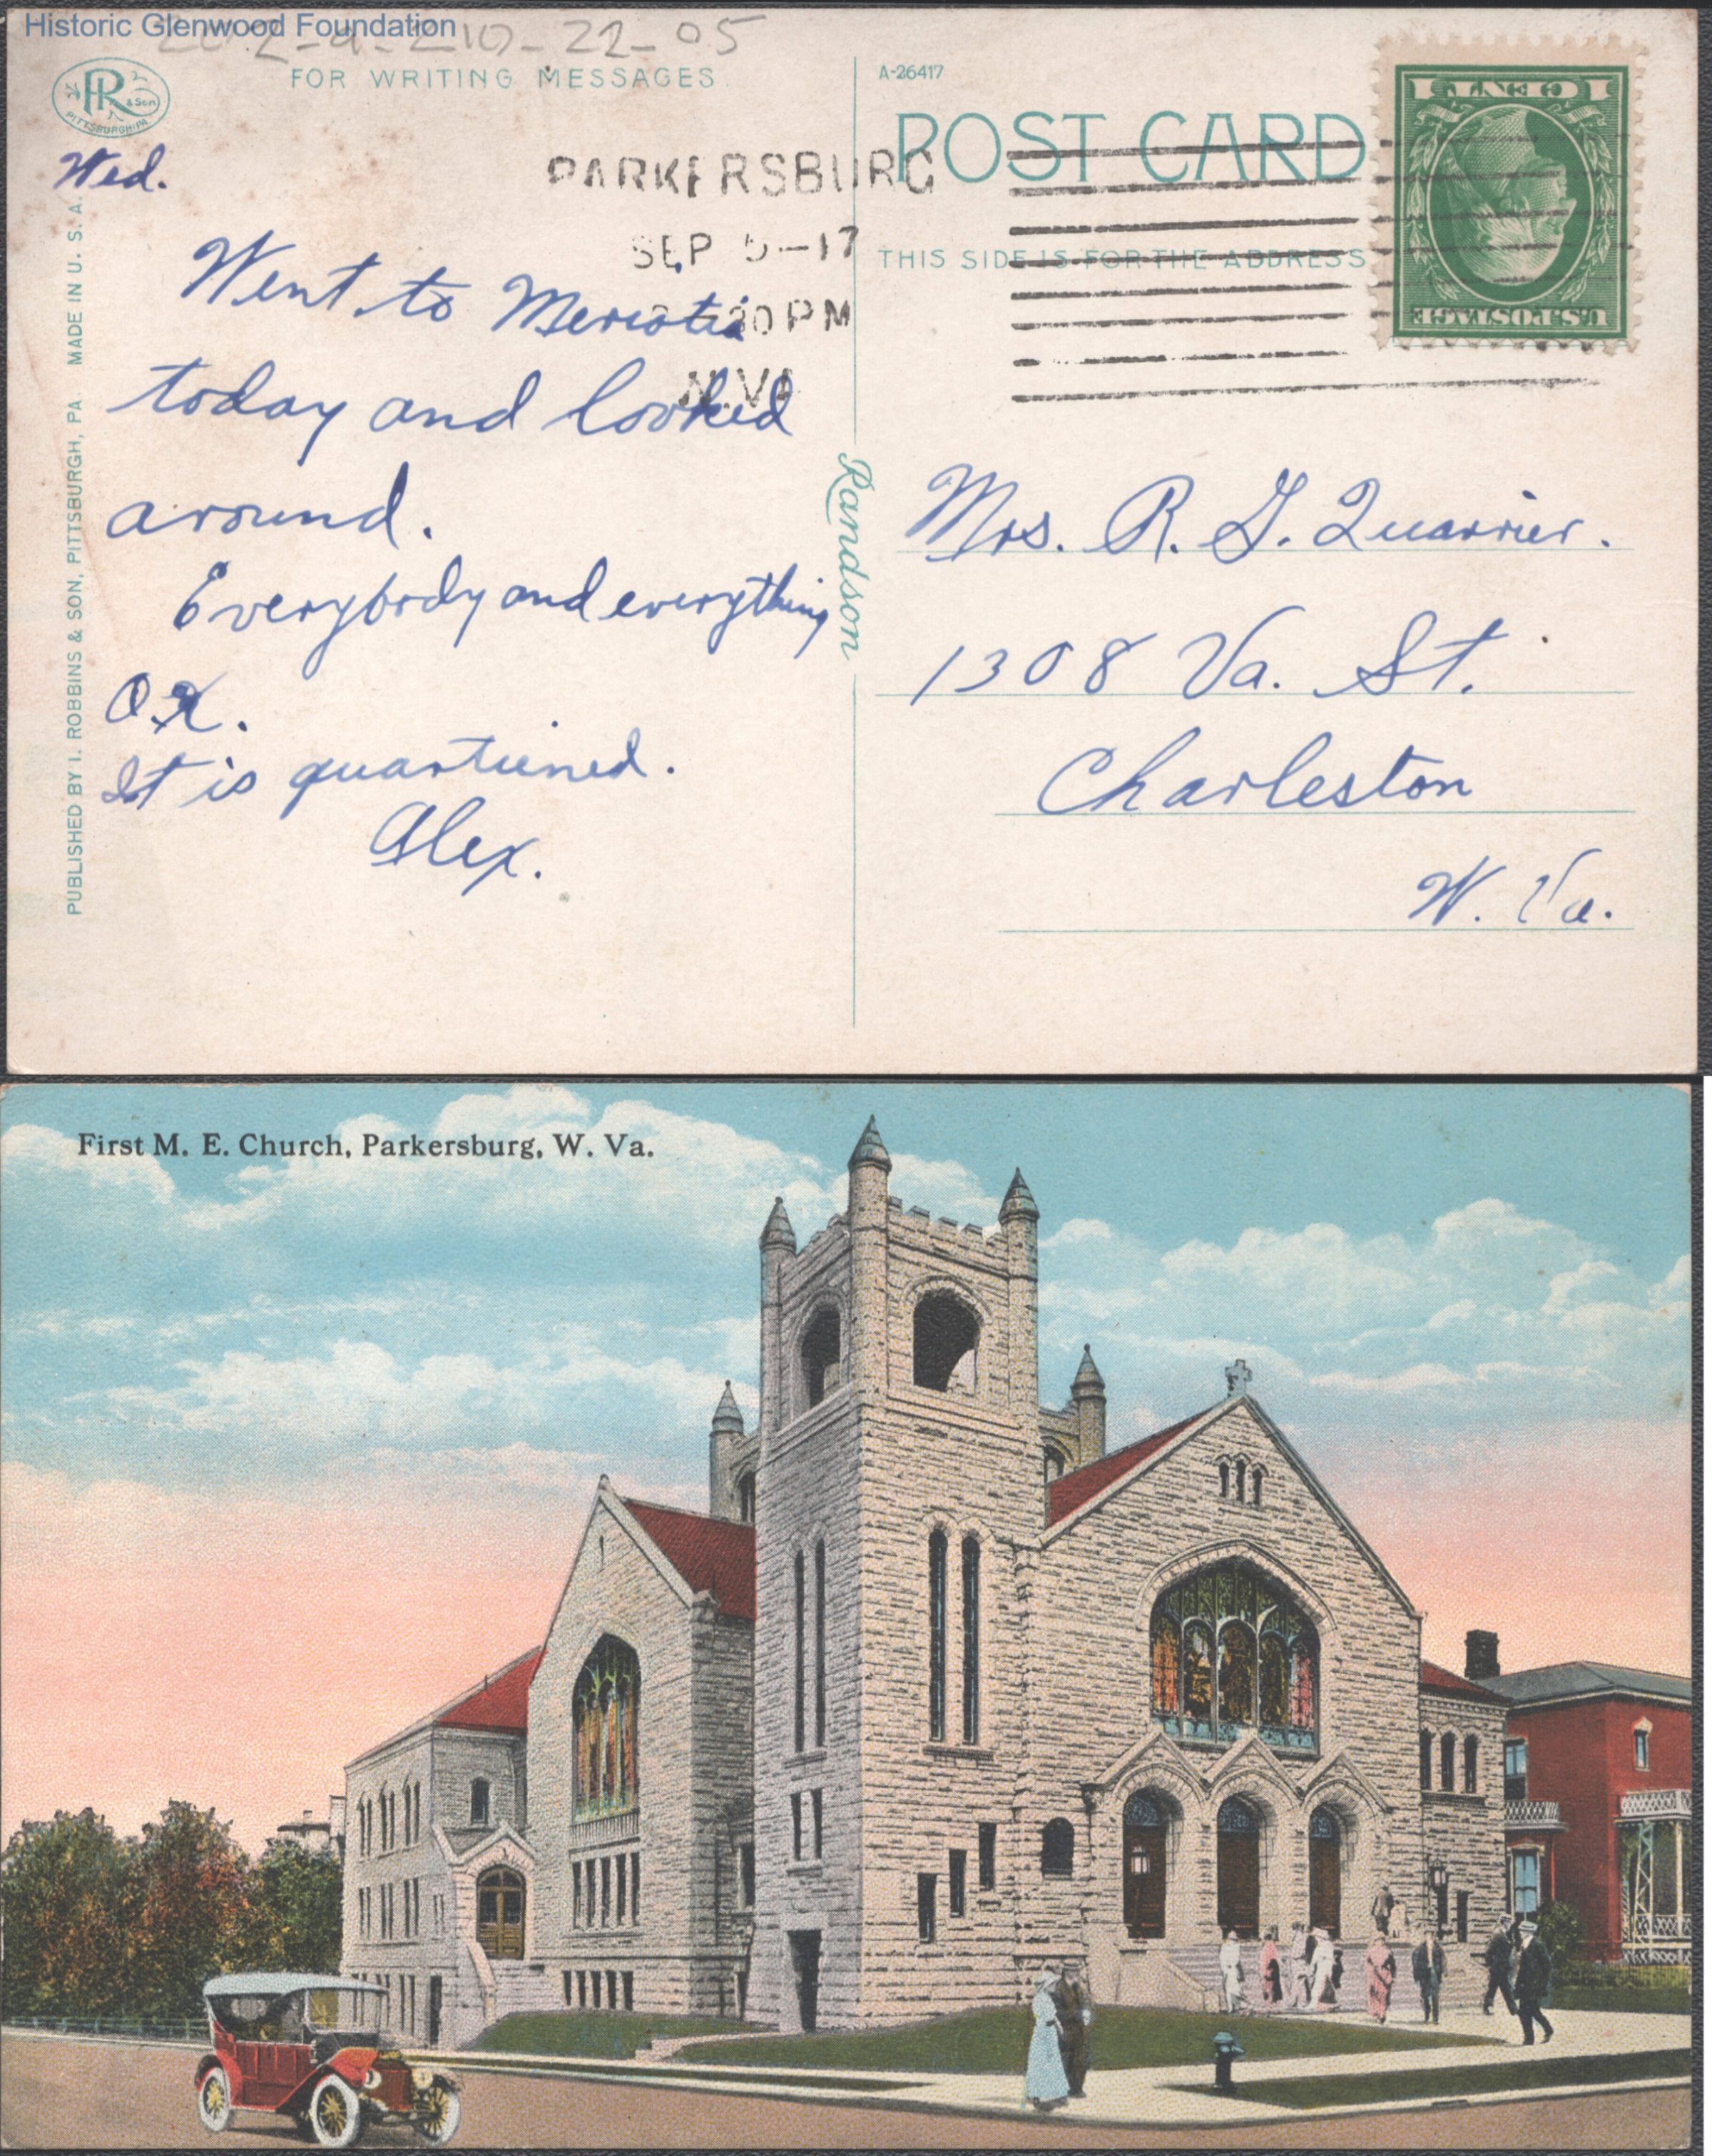 Historic Glenwood Foundation
22-05
FOR WRITING MESSAGES
PR
& Son
PITTSBURGH-PA
A-26417
POST CARD
1 CENT 1
U.S. POSTAGE
THIS SIDE IS FOR THE ADDRESS
PARKERSBURG
SEP 5-17
30 PM
W.VA
Wed.
Went to Meriotia
today and looked
around.
Everybody and everything
O.K.
It is quartiened.
Alex.
PUBLISHED BY I. ROBBINS & SON, PITTSBURGH, PA MADE IN U. S. A.
Randson
Mrs. R. G. Quarrier.
1308 Va. St.
Charleston
W. Va.
First M. E. Church, Parkersburg, W. Va.